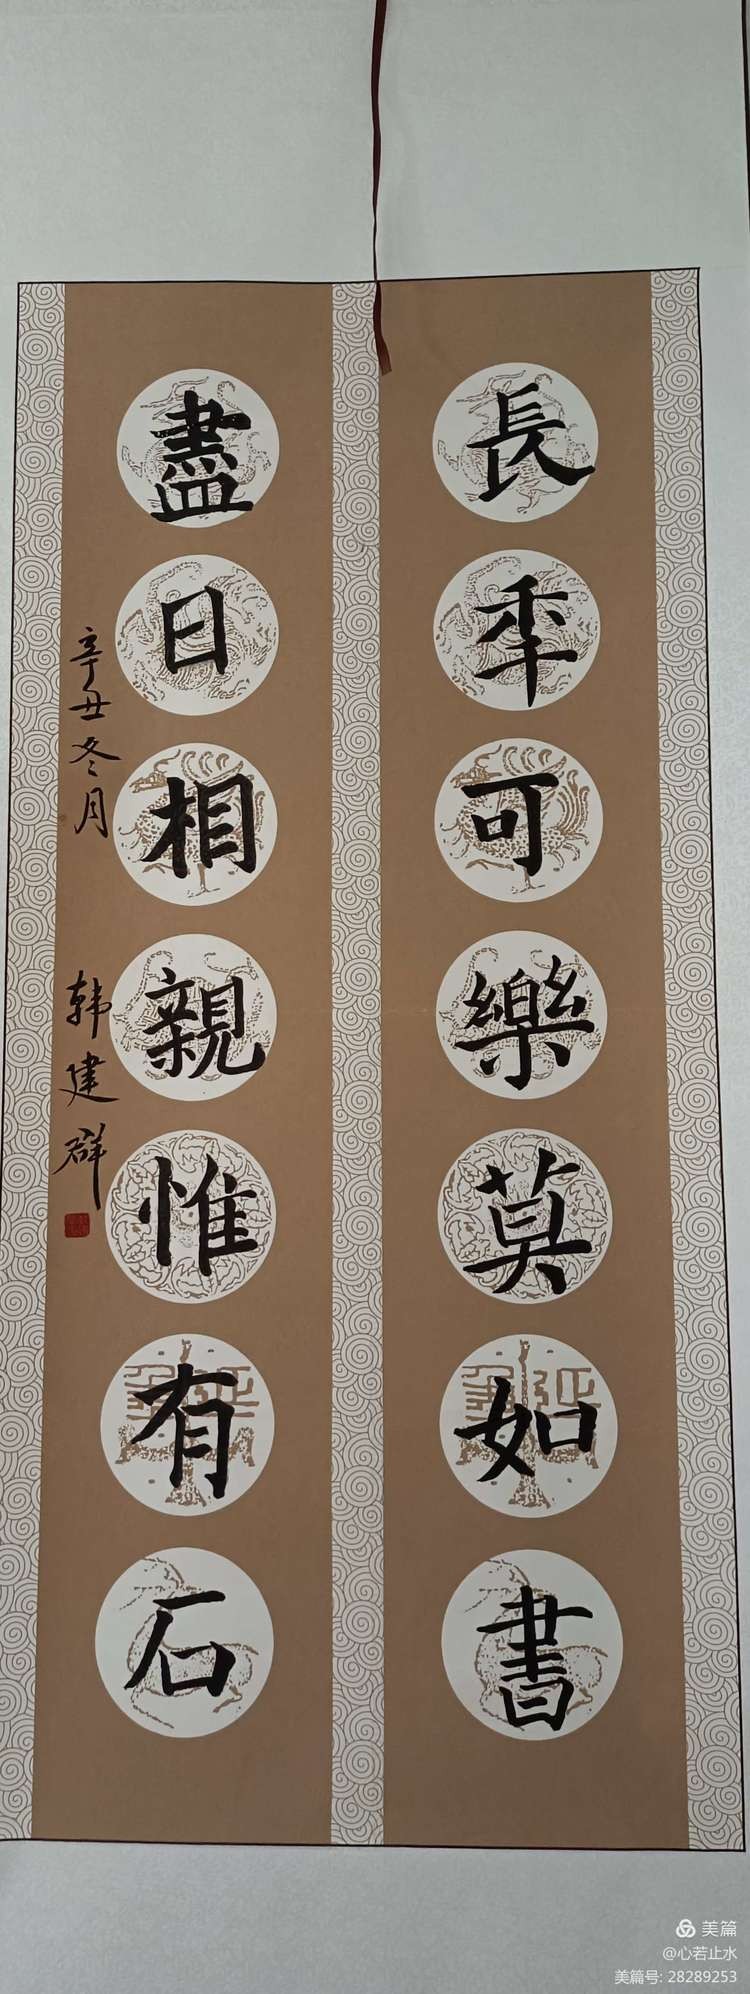 長年可樂莫如書
盡日相親惟有石
辛丑冬月
韩建群
美篇
@心若止水
美篇号: 28289253